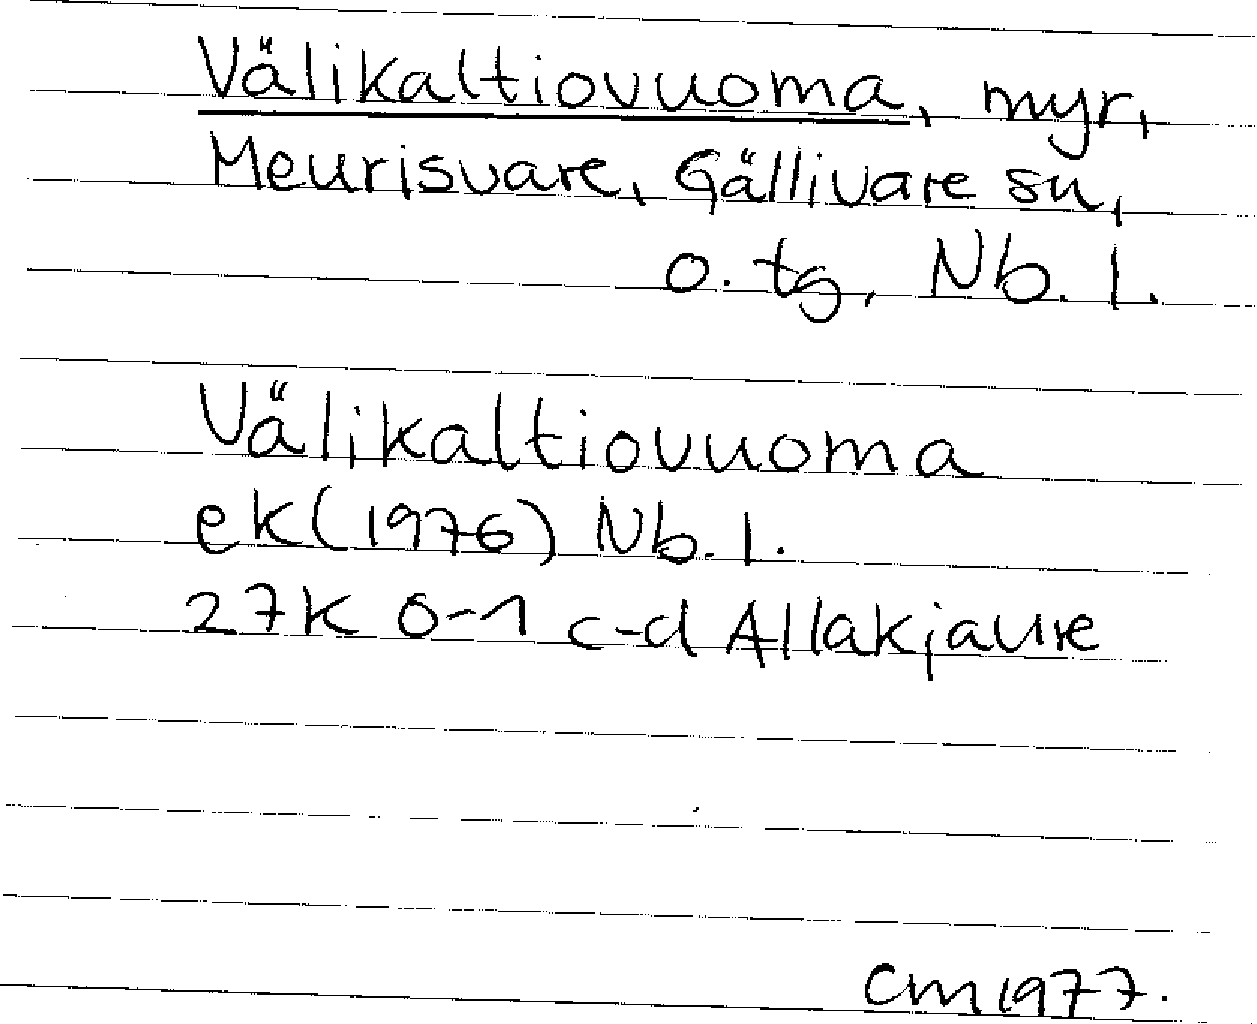 Välikaltiovuoma, myr,
Meurisvare, Gällivare sn,
o. tg, Nb. l.
Välikaltiovuoma
ek(1976) Nb. l.
27K 0-1 c-d Allakjaure
CM1977.